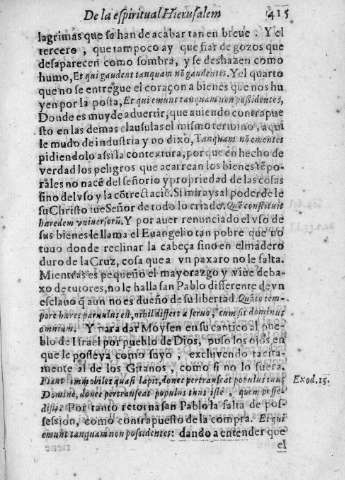 De la espiritual Hierusalem 415
lagrimas que se han de acabar tan en breue. Y el
tercero, que tampoco ay que fiar de gozos que
desapareceri como sombra, y se deshazen como
humo, Et qui gaudent tanquam nõ gaudentes. Y el quarto
que no se entregue el coraçon a bienes que nos hu
yen por la posta, Et qui emunt tanquam non possidentes,
Donde es muy de aduertir, que auiendo contrapue
sto en las demas clausulas el mismo termino, aqui
le mudo de industria y no dixo, Tanquam nõ ementes
pidiendolo assi la contextura, porque en hecho de
verdad los peligros que acarreen los bienes tẽpo-
rales no nacẽ del señorio y propriedad de las cosas
sino del vso y la cõtrectaciõ. Si miray s al poder de le
su Christo fue Señor de todo lo criado. Quẽ constituit
hæredem vniuersorũ. Y por auer renunciado el vso de
sus bienes le llama el Euangelio tan pobre que no
tuuo donde reclinar la cabeça sino en el madero
duro de la Cruz, cosa que a vn paxaro no le falta.
Mientras es pequeño el mayorazgo y viue deba-
xo de tutores, no le halla san Pablo differente de vn
esclauo q̃ aun no es dueño de su libertad. Quãto tem-
pore hæres paruulus est, nihil differt a seruo, cum sit dominus
omnium. Y para dar Moysen en su cantico al pue-
blo de Israel por pueblo de Dios, puso los ojos en
que le posseya como suyo, excluyendo tacita-
mente al de los Gitanos, como si no lo fuera.
Fiant immobiles quasi lapis, donec pertranseat populus tuus Exod. 15.
Domine, donec pertranseat populus tuus iste, quem posse-
disti. Por tanto retorna san Pablo la falta de pos-
session, como contrapuesto de la compra. Et qui
emunt tanquam non possidentes: dando a entender que
el